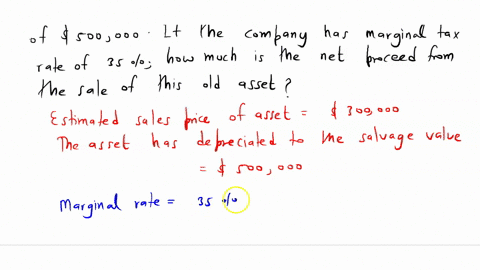 of $500,000. If the company has marginal tax
rate of 35%; how much is the net proceed from
the sale of this old asset?
Estimated sales price of asset = $300,000
The asset has depreciated to the salvage value
= $500,000
Marginal rate = 35%